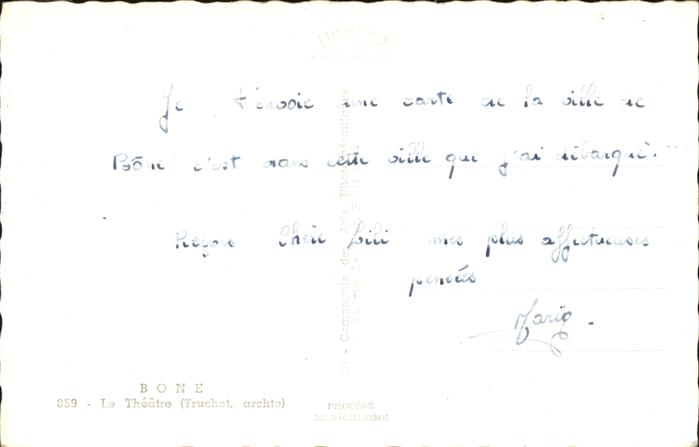 LUMICAP
Je t'envoie une carte de la ville de
Bône c'est dans cette ville que j'ai débarqué.
Reçois Chère Lili mes plus affectueuses
pensées
Mario.
Compagnie des Arts Photomécaniques
BONE
859 - Le Théâtre (Truchot, archte)
PROCÉDÉ
MEXICHROME